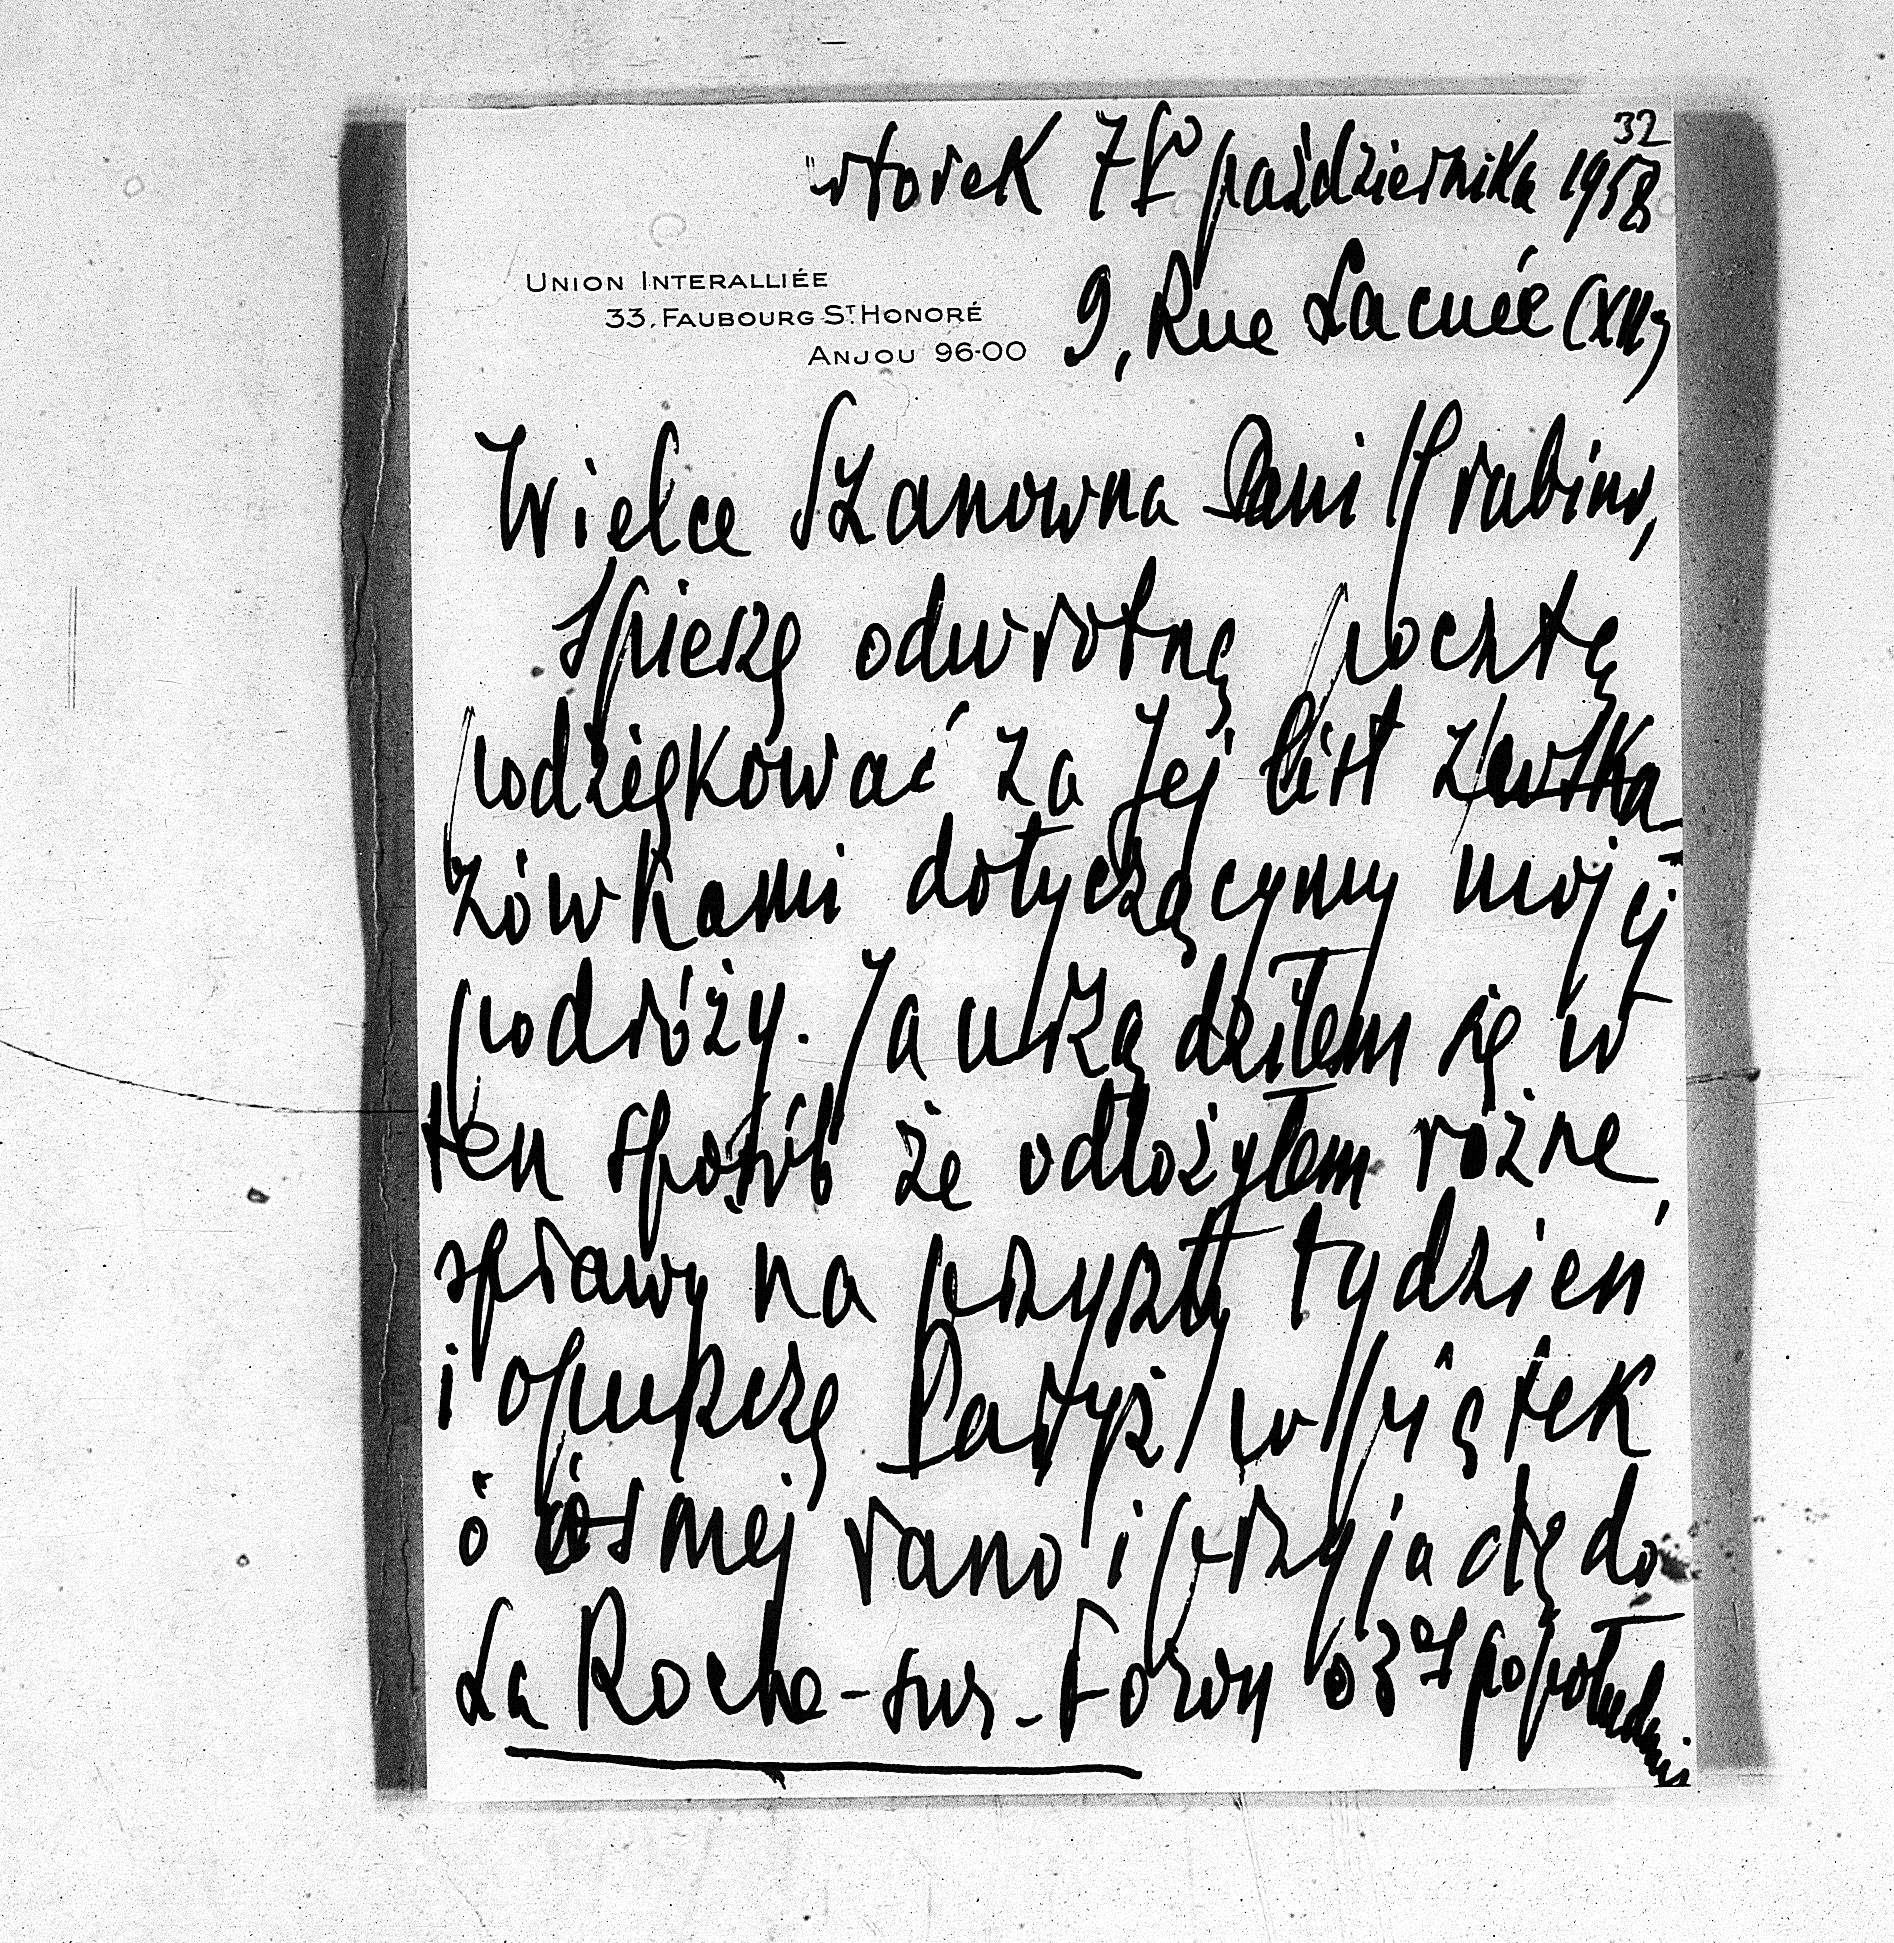 32
wtorek 7go października 1958
UNION INTERALLIÉE
33, FAUBOURG ST. HONORÉ
ANJOU 96-00
9, Rue Lacuée (XII)
Wielce Szanowna Pani Hrabino,
Spieszę odwrotną pocztą
podziękować za Jej list z wska-
zówkami dotyczącymy mojej
podróży. Ja urządziłem się w
ten sposób że odłożyłem różne
sprawy na przyszły tydzień
i opuszczę Paryż w piątek
o ósmej rano i przyjadę do
La Roche-sur-Foron o 3ej popołudniu